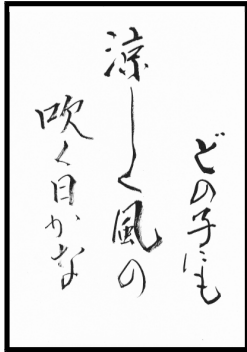 どの子にも
涼しく風の
吹く日かな